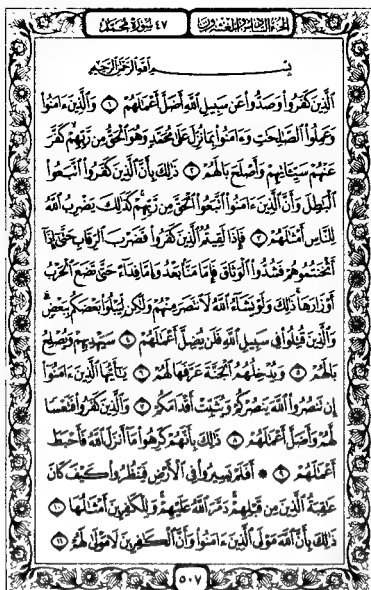 الجزء السادس والعشرون ٤٧ سورة محمد
بسم الله الرحمن الرحيم
الَّذِينَ كَفَرُوا وَصَدُّوا عَن سَبِيلِ اللَّهِ أَضَلَّ أَعْمَٰلَهُمْ ١ وَالَّذِينَ ءَامَنُوا
وَعَمِلُوا الصَّٰلِحَٰتِ وَءَامَنُوا بِمَا نُزِّلَ عَلَىٰ مُحَمَّدٍ وَهُوَ الْحَقُّ مِن رَّبِّهِمْ كَفَّرَ
عَنْهُمْ سَيِّـَٔاتِهِمْ وَأَصْلَحَ بَالَهُمْ ٢ ذَٰلِكَ بِأَنَّ الَّذِينَ كَفَرُوا اتَّبَعُوا
الْبَٰطِلَ وَأَنَّ الَّذِينَ ءَامَنُوا اتَّبَعُوا الْحَقَّ مِن رَّبِّهِمْ كَذَٰلِكَ يَضْرِبُ اللَّهُ
لِلنَّاسِ أَمْثَٰلَهُمْ ٣ فَإِذَا لَقِيتُمُ الَّذِينَ كَفَرُوا فَضَرْبَ الرِّقَابِ حَتَّىٰ إِذَا
أَثْخَنتُمُوهُمْ فَشُدُّوا الْوَثَاقَ فَإِمَّا مَنًّا بَعْدُ وَإِمَّا فِدَآءً حَتَّىٰ تَضَعَ الْحَرْبُ
أَوْزَارَهَا ذَٰلِكَ وَلَوْ يَشَآءُ اللَّهُ لَانتَصَرَ مِنْهُمْ وَلَٰكِن لِّيَبْلُوَا بَعْضَكُم بِبَعْضٍ
وَالَّذِينَ قُتِلُوا فِي سَبِيلِ اللَّهِ فَلَن يُضِلَّ أَعْمَٰلَهُمْ ٤ سَيَهْدِيهِمْ وَيُصْلِحُ
بَالَهُمْ ٥ وَيُدْخِلُهُمُ الْجَنَّةَ عَرَّفَهَا لَهُمْ ٦ يَٰٓأَيُّهَا الَّذِينَ ءَامَنُوا
إِن تَنصُرُوا اللَّهَ يَنصُرْكُمْ وَيُثَبِّتْ أَقْدَامَكُمْ ٧ وَالَّذِينَ كَفَرُوا فَتَعْسًا
لَّهُمْ وَأَضَلَّ أَعْمَٰلَهُمْ ٨ ذَٰلِكَ بِأَنَّهُمْ كَرِهُوا مَآ أَنزَلَ اللَّهُ فَأَحْبَطَ
أَعْمَٰلَهُمْ ٩ ۞ أَفَلَمْ يَسِيرُوا فِي الْأَرْضِ فَيَنظُرُوا كَيْفَ كَانَ
عَٰقِبَةُ الَّذِينَ مِن قَبْلِهِمْ دَمَّرَ اللَّهُ عَلَيْهِمْ وَلِلْكَٰفِرِينَ أَمْثَٰلُهَا ١٠
ذَٰلِكَ بِأَنَّ اللَّهَ مَوْلَى الَّذِينَ ءَامَنُوا وَأَنَّ الْكَٰفِرِينَ لَا مَوْلَىٰ لَهُمْ ١١
٥٠٧